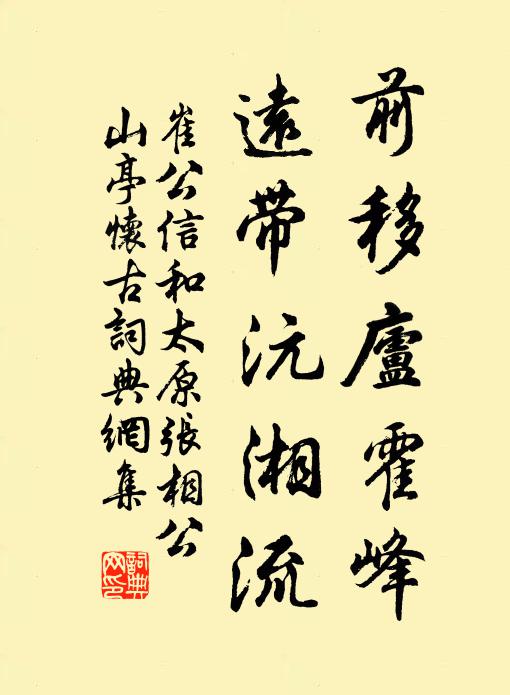 前移廬霍峰
遠带沅湘流
崔公信和太原張相公
山亭懷古詞典網集
詞典网印